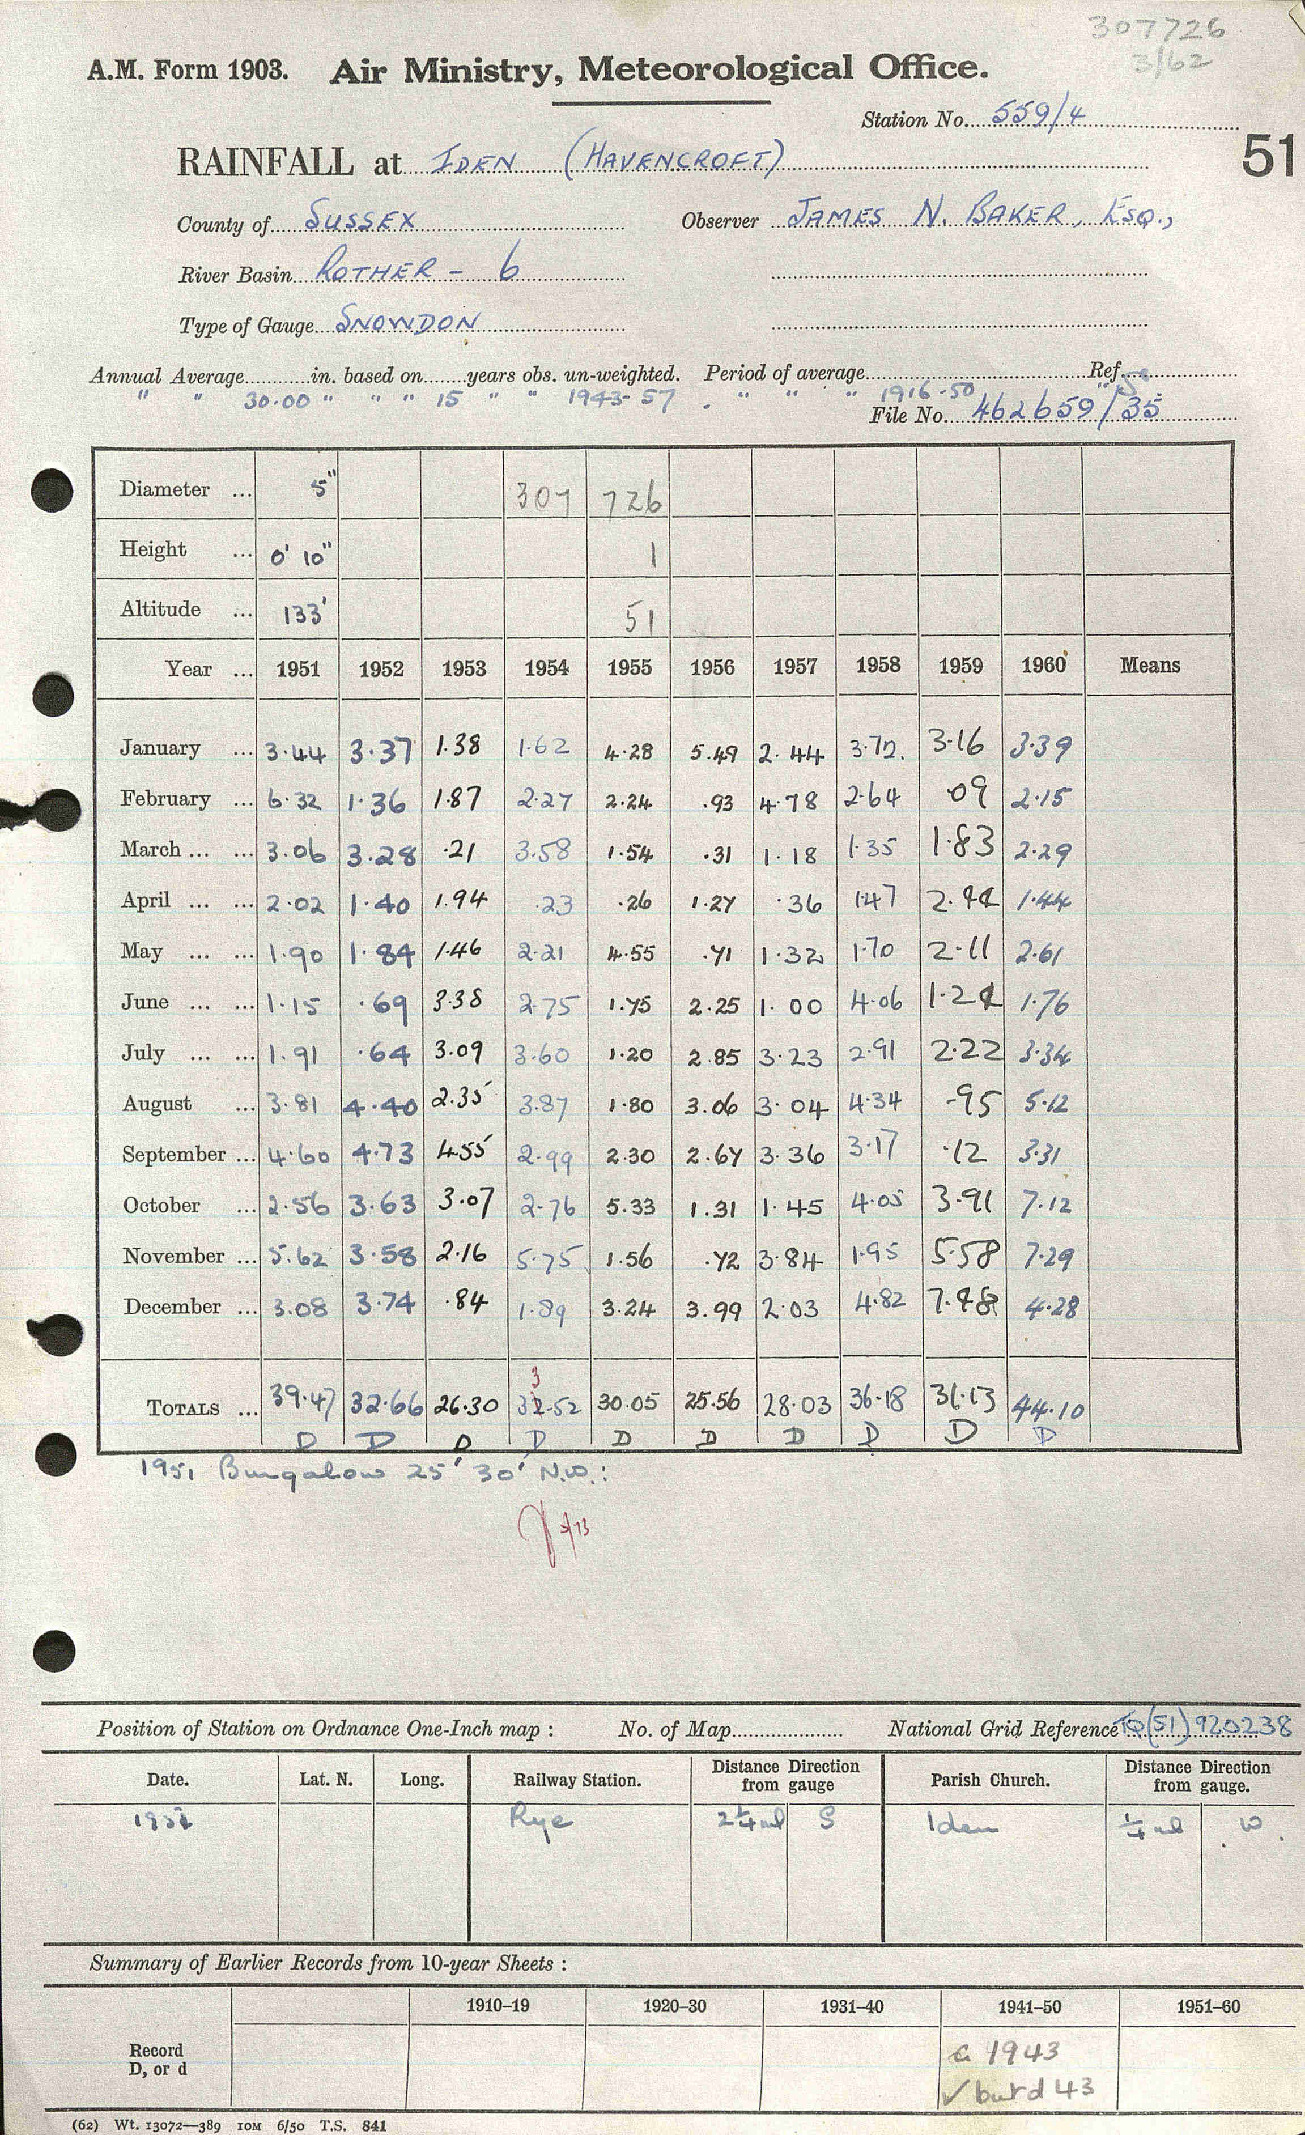 307726
3/62
A.M. Form 1903. Air Ministry, Meteorological Office.
Station No. 559/4
51
RAINFALL at IDEN (HAVENCROFT)
County of SUSSEX Observer JAMES N. BAKER, ESQ.,
River Basin ROTHER - 6
Type of Gauge SNOWDON
Annual Average in. based on years obs. un-weighted. Period of average Ref.
" " 30.00 " " " 15 " " 1943-57 . " " " 1916-50 "
File No. 462659/35
Diameter ... 5" 307 726
Height ... 0' 10" 1
Altitude ... 133' 51
Year ... 1951 1952 1953 1954 1955 1956 1957 1958 1959 1960 Means
January ... 3.44 3.37 1.38 1.62 4.28 5.49 2.44 3.72. 3.16 3.39
February ... 6.32 1.36 1.87 2.27 2.24 .93 4.78 2.64 .09 2.15
March ... ... 3.06 3.28 .21 3.58 1.54 .31 1.18 1.35 1.83 2.29
April ... ... 2.02 1.40 1.94 .23 .26 1.27 .36 1.47 2.44 1.44
May ... ... 1.90 1.84 1.46 2.21 4.55 .71 1.32 1.70 2.11 2.61
June ... ... 1.15 .69 3.38 2.75 1.75 2.25 1.00 4.06 1.24 1.76
July ... ... 1.91 .64 3.09 3.60 1.20 2.85 3.23 2.91 2.22 3.34
August ... 3.81 4.40 2.35 3.87 1.80 3.06 3.04 4.34 .95 5.12
September ... 4.60 4.73 4.55 2.99 2.30 2.67 3.36 3.17 .12 3.31
October ... 2.56 3.63 3.07 2.76 5.33 1.31 1.45 4.05 3.91 7.12
November ... 5.62 3.58 2.16 5.75 1.56 .72 3.84 1.95 5.58 7.29
December ... 3.08 3.74 .84 1.89 3.24 3.99 2.03 4.82 7.48 4.28
3
TOTALS ... 39.47 32.66 26.30 32.52 30.05 25.56 28.03 36.18 31.13 44.10
D D D D D D D D D D
1951 Bungalow 25' 30' N.W.:
Position of Station on Ordnance One-Inch map : No. of Map National Grid Reference TQ(51)920238
Date. Lat. N. Long. Railway Station. Distance Direction from gauge Parish Church. Distance Direction from gauge.
1951 Rye 2¼ml S Iden ¼ml W.
Summary of Earlier Records from 10-year Sheets :
1910–19 1920–30 1931–40 1941–50 1951–60
Record
D, or d
a 1943
✓ but d 43
(62) Wt. 13072—389 10M 6/50 T.S. 841